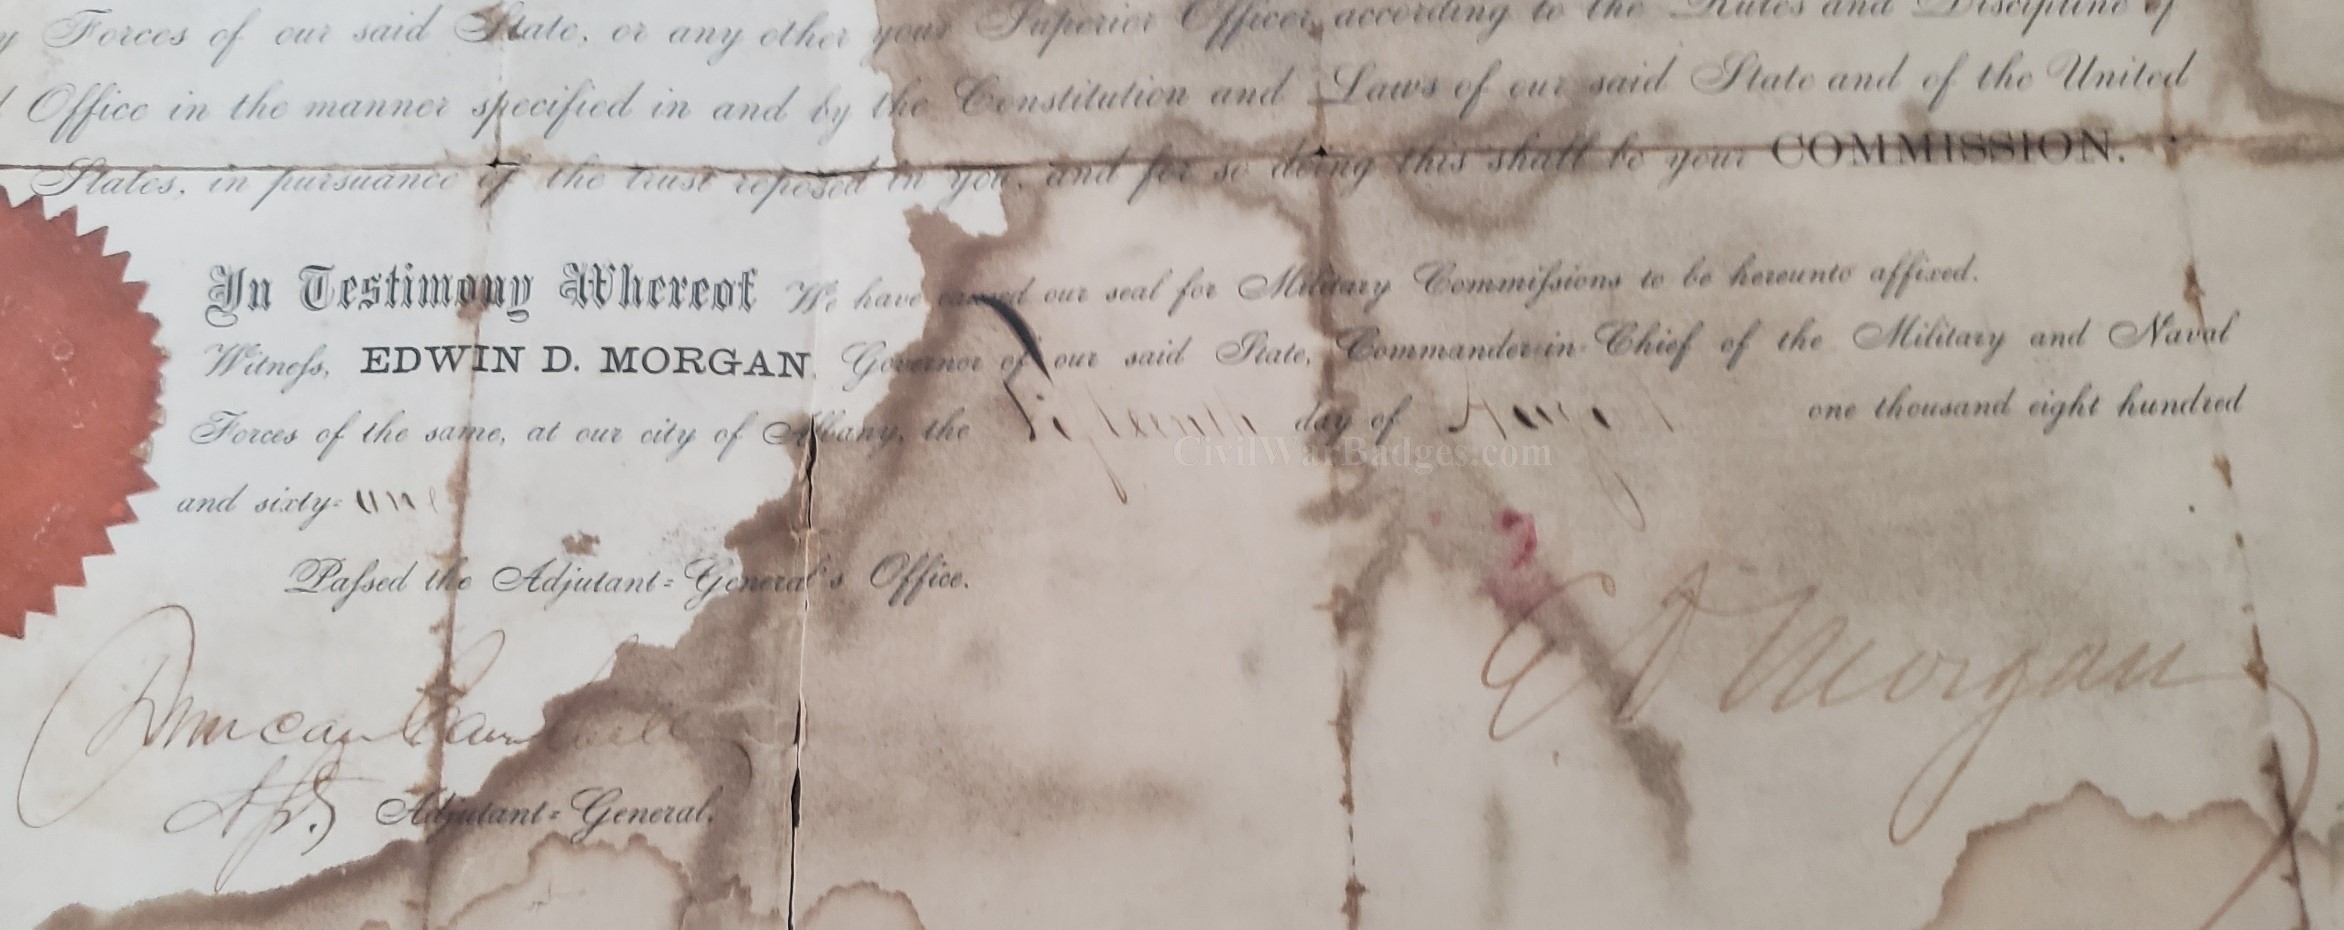 Forces of our said State, or any other your Superior Officer, according to the Rules and Discipline of
Office in the manner specified in and by the Constitution and Laws of our said State and of the United
States, in pursuance of the trust reposed in you, and for so doing this shall be your COMMISSION.
In Testimony Whereof We have caused our seal for Military Commissions to be hereunto affixed.
Witness, EDWIN D. MORGAN, Governor of our said State, Commander-in-Chief of the Military and Naval
Forces of the same, at our city of Albany, the fifteenth day of August one thousand eight hundred
and sixty-one
CivilWarBadges.com
Passed the Adjutant-General's Office.
E D Morgan
Duncan Campbell
Asst Adjutant-General.